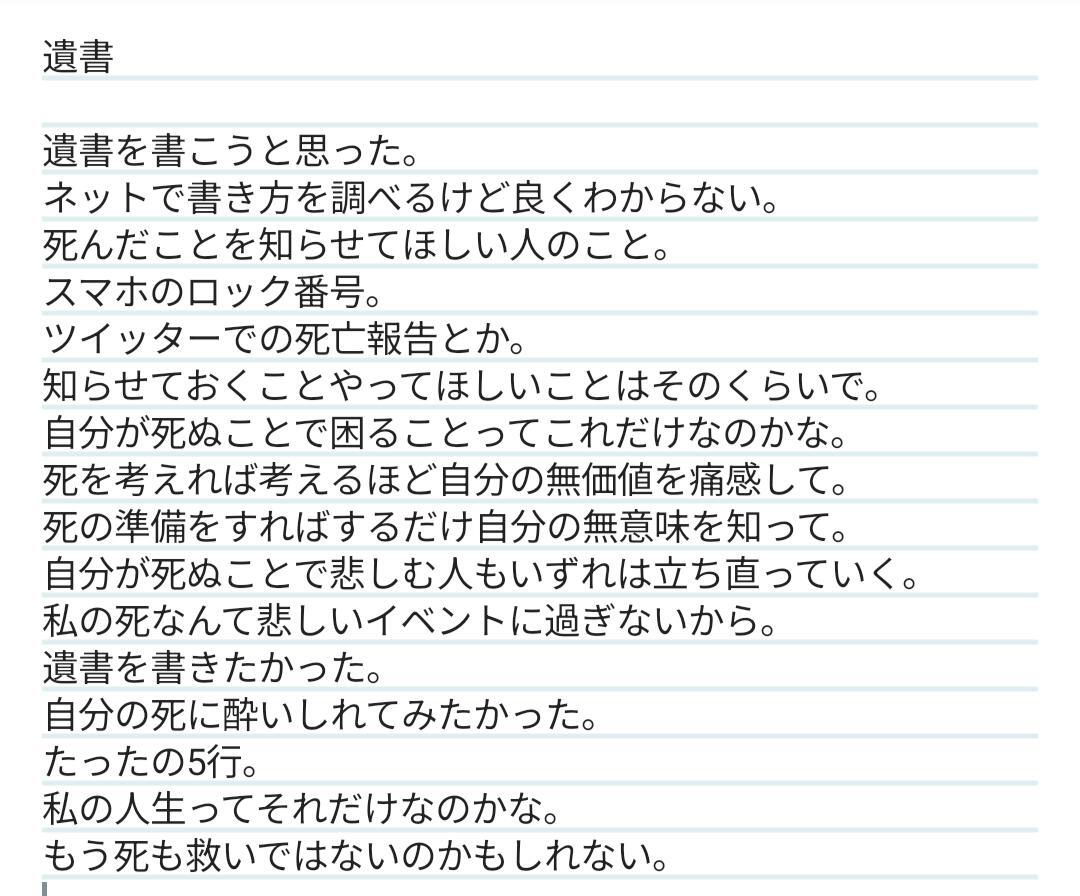 遺書
遺書を書こうと思った。
ネットで書き方を調べるけど良くわからない。
死んだことを知らせてほしい人のこと。
スマホのロック番号。
ツイッターでの死亡報告とか。
知らせておくことやってほしいことはそのくらいで。
自分が死ぬことで困ることってこれだけなのかな。
死を考えれば考えるほど自分の無価値を痛感して。
死の準備をすればするだけ自分の無意味を知って。
自分が死ぬことで悲しむ人もいずれは立ち直っていく。
私の死なんて悲しいイベントに過ぎないから。
遺書を書きたかった。
自分の死に酔いしれてみたかった。
たったの5行。
私の人生ってそれだけなのかな。
もう死も救いではないのかもしれない。